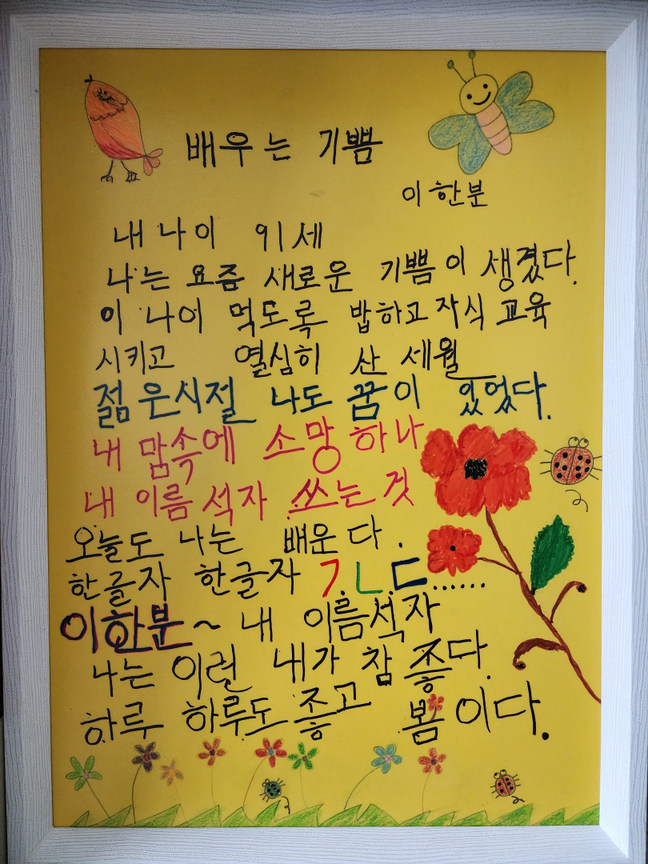 배우는 기쁨
이한분
내 나이 91세
나는 요즘 새로운 기쁨이 생겼다.
이 나이 먹도록 밥하고 자식 교육
시키고 열심히 산 세월
젊은시절 나도 꿈이 있었다.
내 맘속에 소망 하나
내 이름 석자 쓰는 것
오늘도 나는 배운다.
한글자 한글자 ㄱ.ㄴ.ㄷ......
이한분~ 내 이름석자
나는 이런 내가 참 좋다.
하루 하루도 좋고 봄이다.